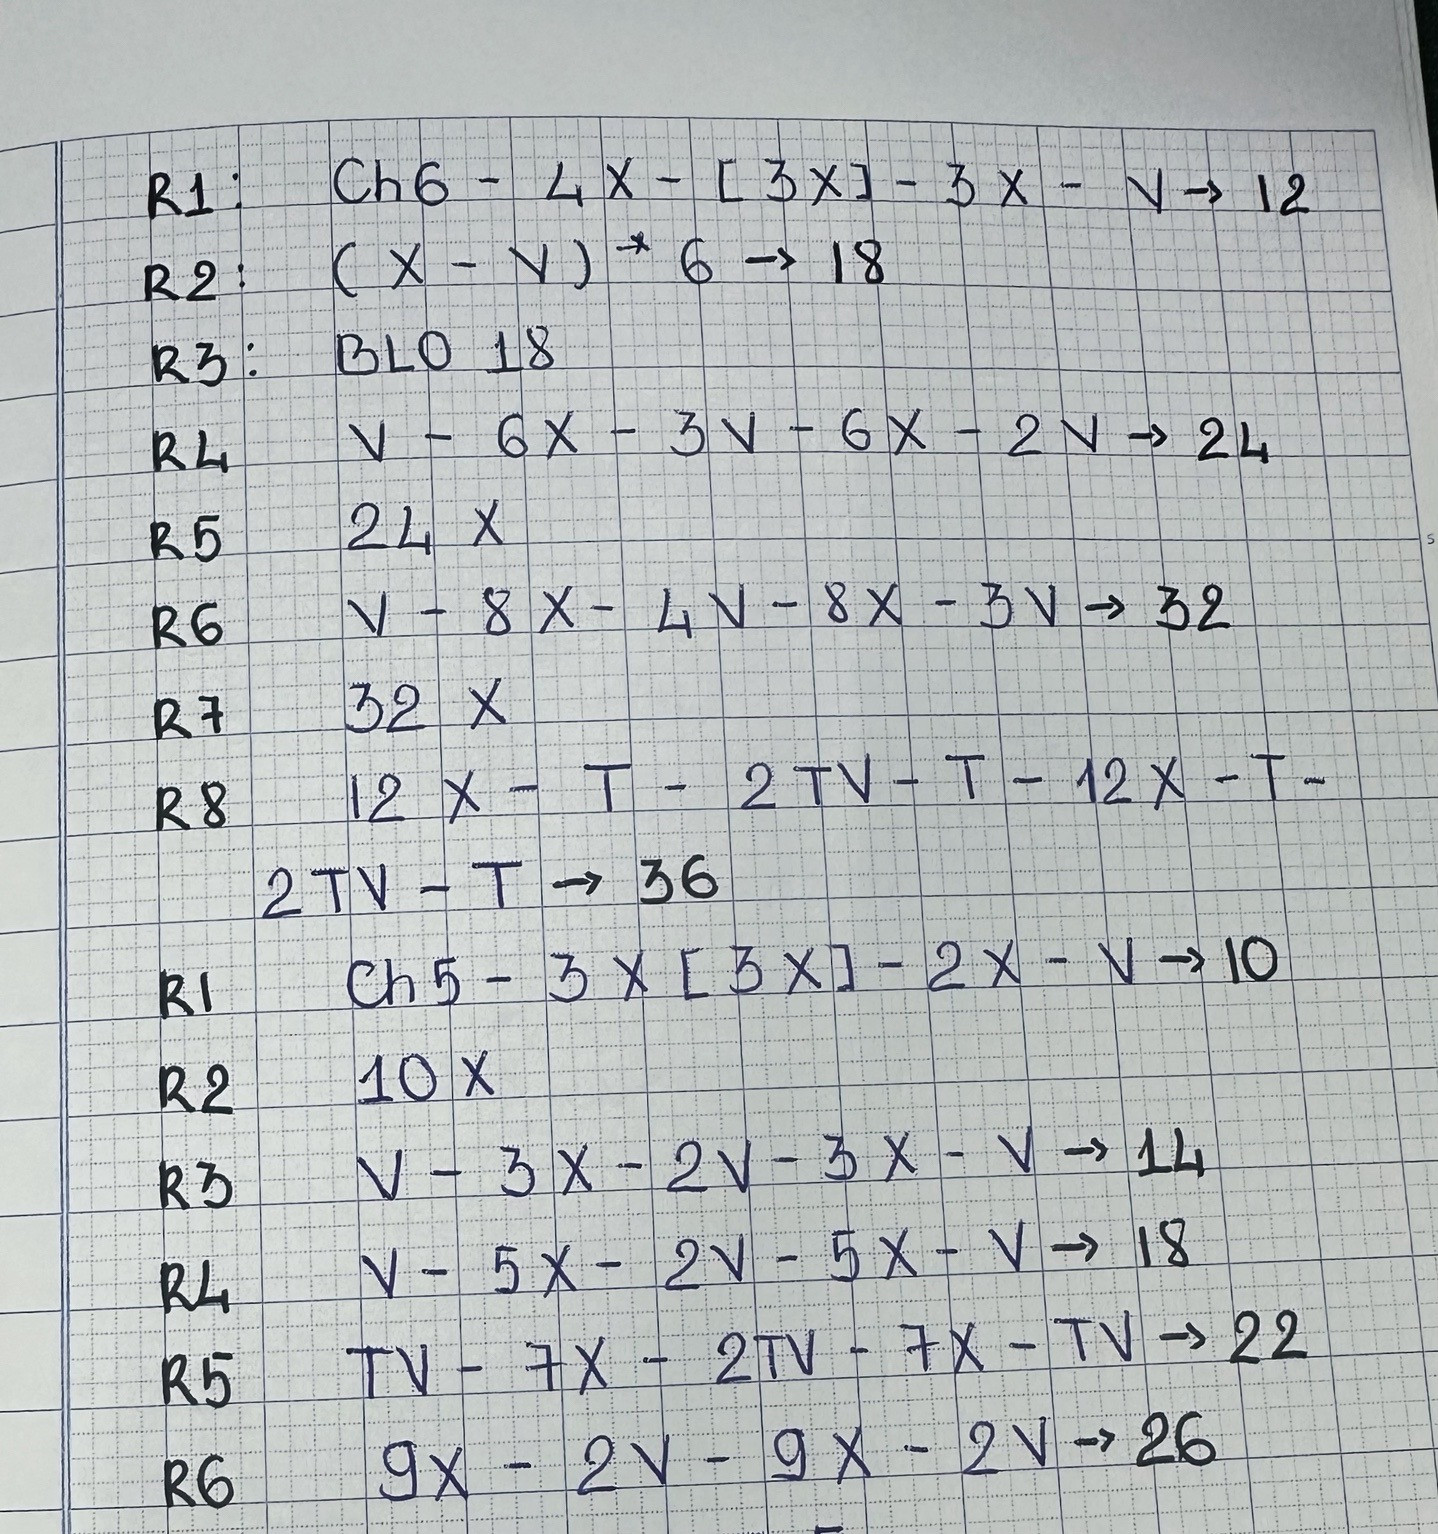 R1: Ch6 - 4X - [3X] - 3X - V → 12
R2: (X - V) * 6 → 18
R3: BLO 18
R4 V - 6X - 3V - 6X - 2V → 24
R5 24 X
R6 V - 8X - 4V - 8X - 3V → 32
R7 32 X
R8 12 X - T - 2TV - T - 12X - T -
2TV - T → 36
R1 Ch5 - 3X [3X] - 2X - V → 10
R2 10 X
R3 V - 3X - 2V - 3X - V → 14
R4 V - 5X - 2V - 5X - V → 18
R5 TV - 7X - 2TV - 7X - TV → 22
R6 9X - 2V - 9X - 2V → 26